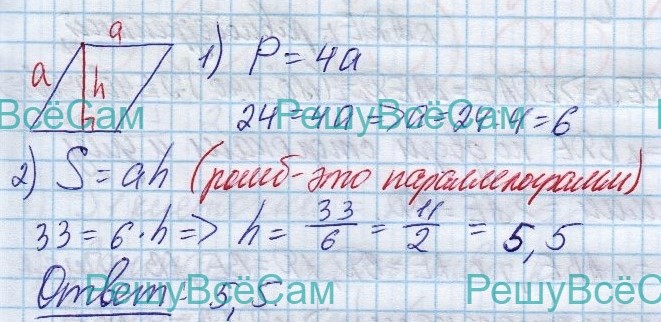 a
a
h
1) P = 4a
ВсёСам РешуВсёСам
24 = 4a => a = 24:4 = 6
2) S = ah (ромб-это параллелограмм)
33 = 6·h => h = 33/6 = 11/2 = 5,5
Ответ: 5,5.
РешуВсёСам РешуВсёСам